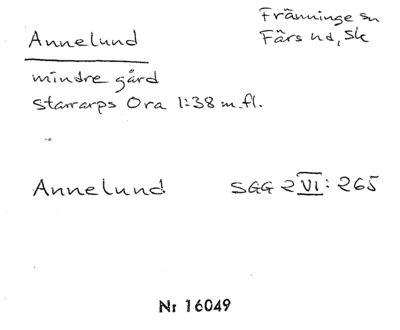 Annelund
Fränninge sn
Färs hd, Sk
mindre gård
Starrarps Ora 1:38 m.fl.
Annelund SGG 2 VI: 265
Nr 16049